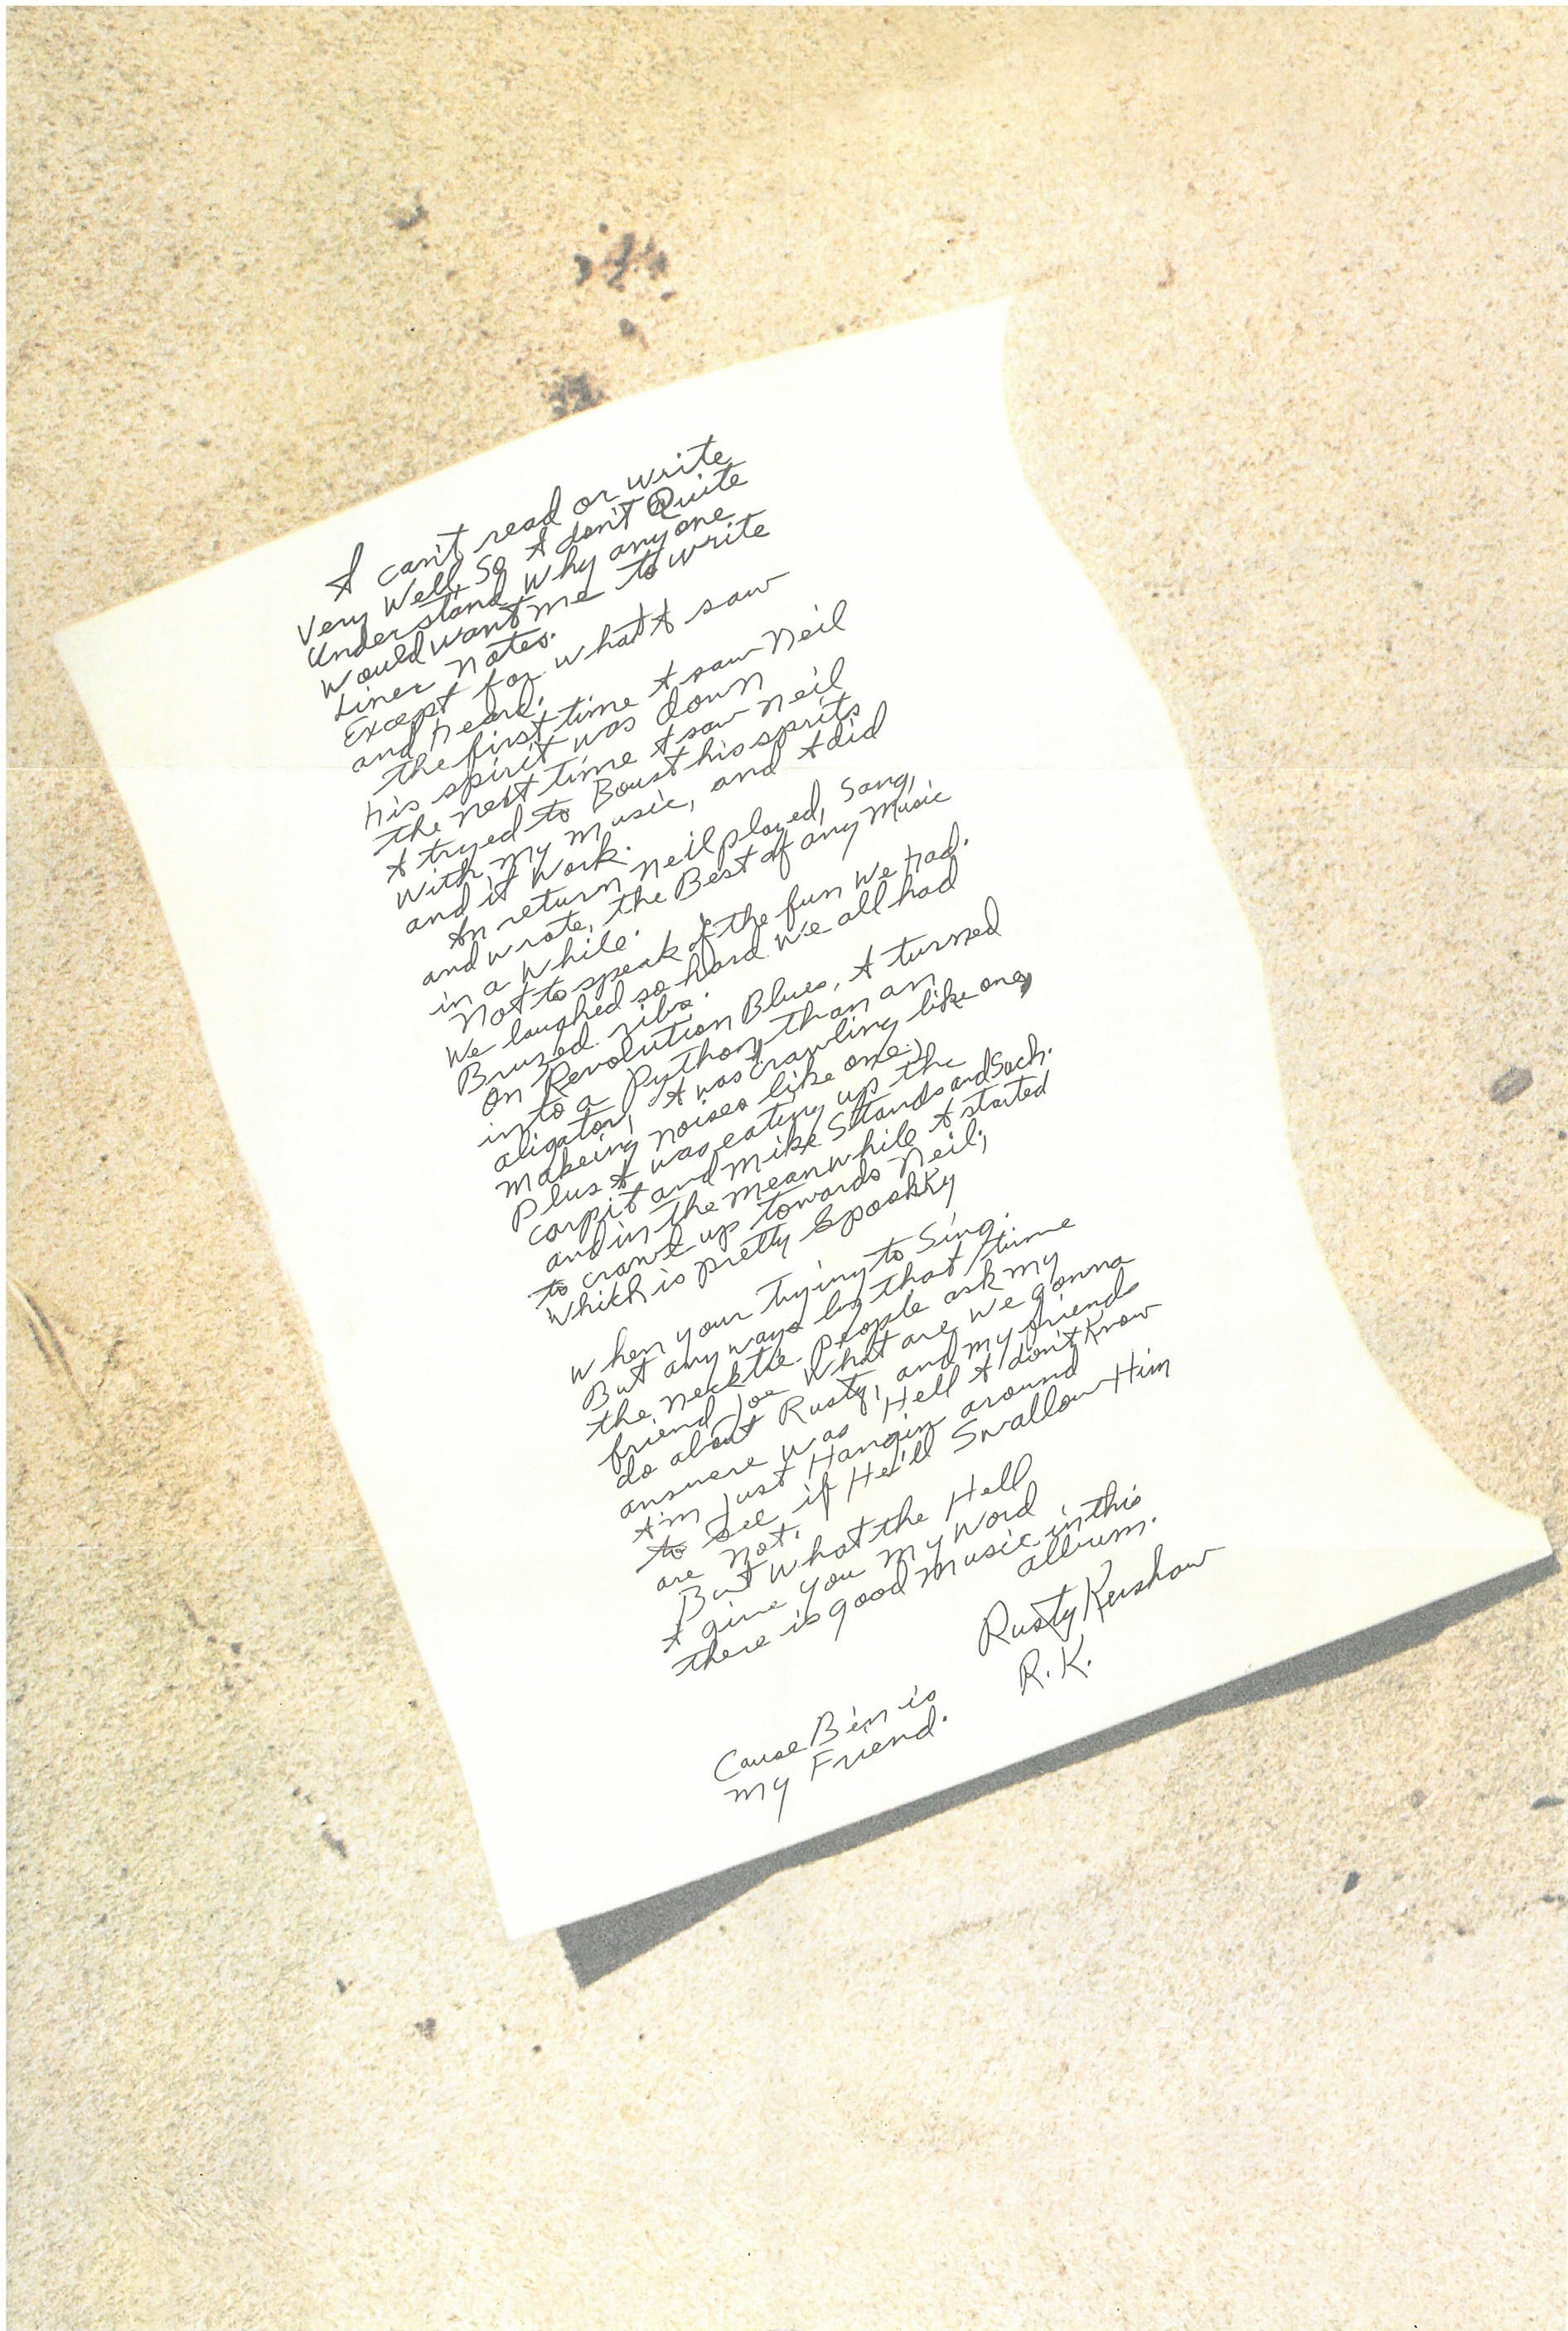 I can't read or write
Very Well, So I don't Quite
Understand Why anyone
Would want me to write
Liner Notes.
Except for what I saw
and heard.
the first time I saw Neil
his spirit was down
the next time I saw Neil
I tryed to Boust his spirits
With my music, and I did
and it work.
In return Neil played, Sang,
and wrote, the Best of any Music
in a while.
Not to speak of the fun We had.
We laughed so hard We all had
Bruzed ribs.
On Revolution Blues, I turned
into a Python, than an
aligator, I was crawling like one,
makeing noises like one.
Plus I was eating up the
carpit and mike Sttands and Such.
and in the meanwhile I started
to crawl up towards Neil,
Which is pretty Spookky
When your trying to Sing.
But any ways by that time
the necktie people ask my
friend Joe What are we gonna
do about Rusty, and my friends
answere was Hell I don't Know
I'm Just Hangin around
to See if He'll Swallow Him
are Not.
But What the Hell
I give you my Word
there is good Music in this
album.
Rusty Kershaw
R. K.
Cause Ben is
my Friend.